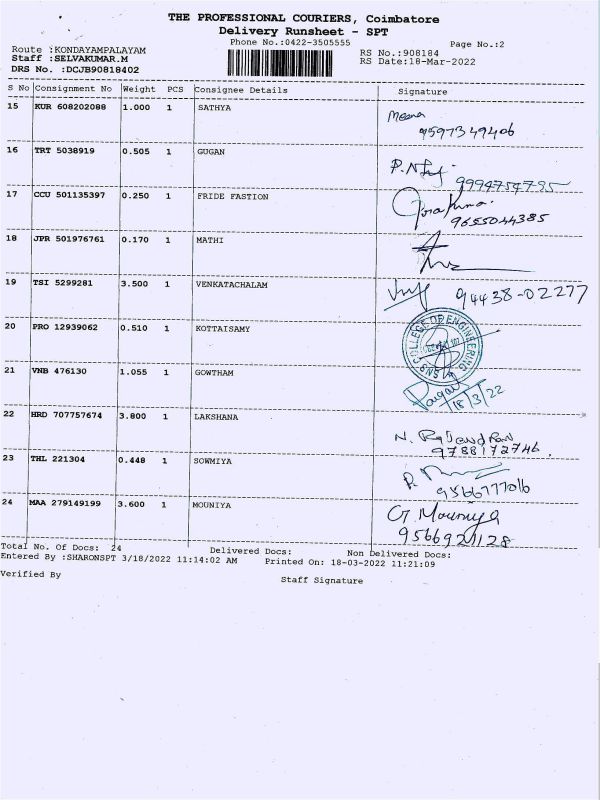 THE PROFESSIONAL COURIERS, Coimbatore
Delivery Runsheet - SPT
Phone No.:0422-3505555
Page No.:2
Route :KONDAYAMPALAYAM
Staff :SELVAKUMAR.M
DRS No. :DCJB90818402
RS No.:908184
RS Date:18-Mar-2022
S No Consignment No Weight PCS Consignee Details Signature
15 KUR 608202088 1.000 1 SATHYA
Meena
9597349406
16 TRT 5038919 0.505 1 GUGAN
17 CCU 501135397 0.250 1 FRIDE FASTION
9655044385
18 JPR 501976761 0.170 1 MATHI
19 TSI 5299281 3.500 1 VENKATACHALAM
94438-02277
20 PRO 12939062 0.510 1 KOTTAISAMY
SNS COLLEGE OF ENGINEERING
21 VNB 476130 1.055 1 GOWTHAM
18/3/22
22 HRD 707757674 3.800 1 LAKSHANA
9788172746.
23 THL 221304 0.448 1 SOWMIYA
9566777016
24 MAA 279149199 3.600 1 MOUNIYA
G. Mouniya
9566921128
Total No. Of Docs: 24 Delivered Docs: Non Delivered Docs:
Entered By :SHARONSPT 3/18/2022 11:14:02 AM Printed On: 18-03-2022 11:21:09
Verified By
Staff Signature